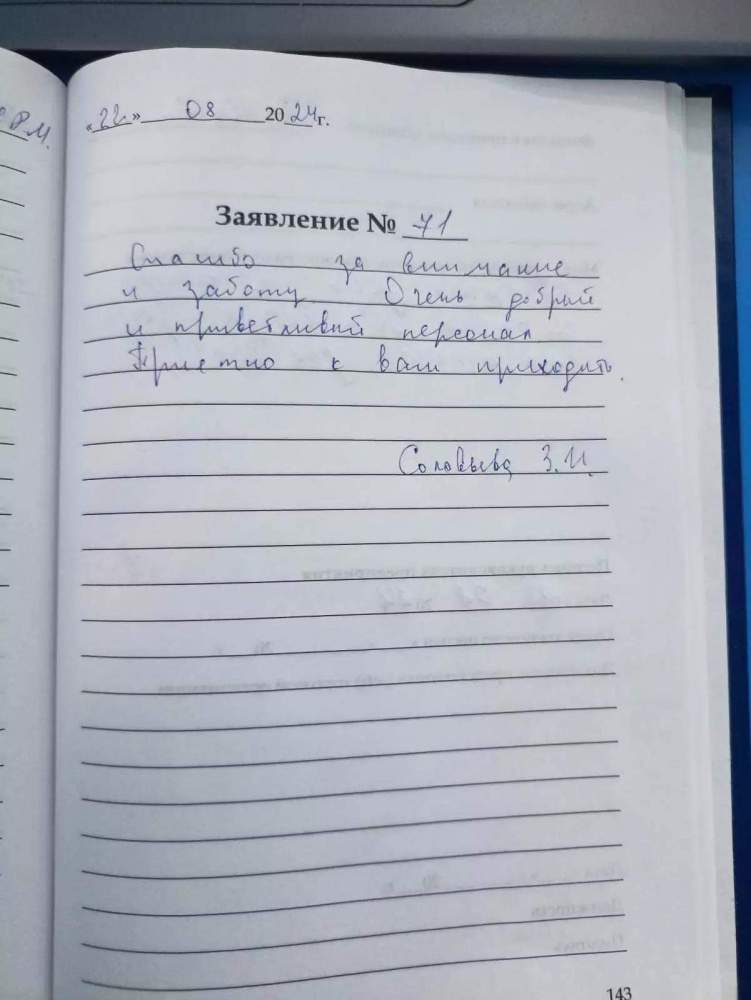 Р.М.
«22» 08 2024г.
Заявление № 71
Спасибо за внимание
и заботу Очень добрый
и приветливый персонал
Приетно к вам приходить.
Соловьева З.И.
143